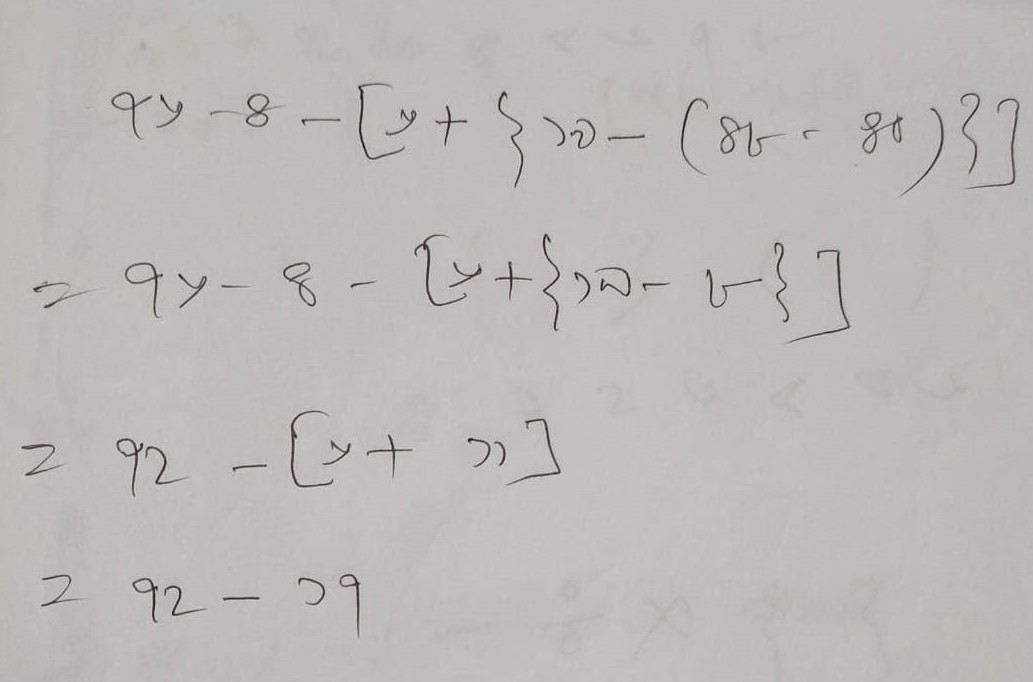 ৭৬ - ৪ - [৬ + {১৯ - (৪৮ - ৪০)}]
= ৭৬ - ৪ - [৬ + {১৯ - ৮}]
= ৭২ - [৬ + ১১]
= ৭২ - ১৭